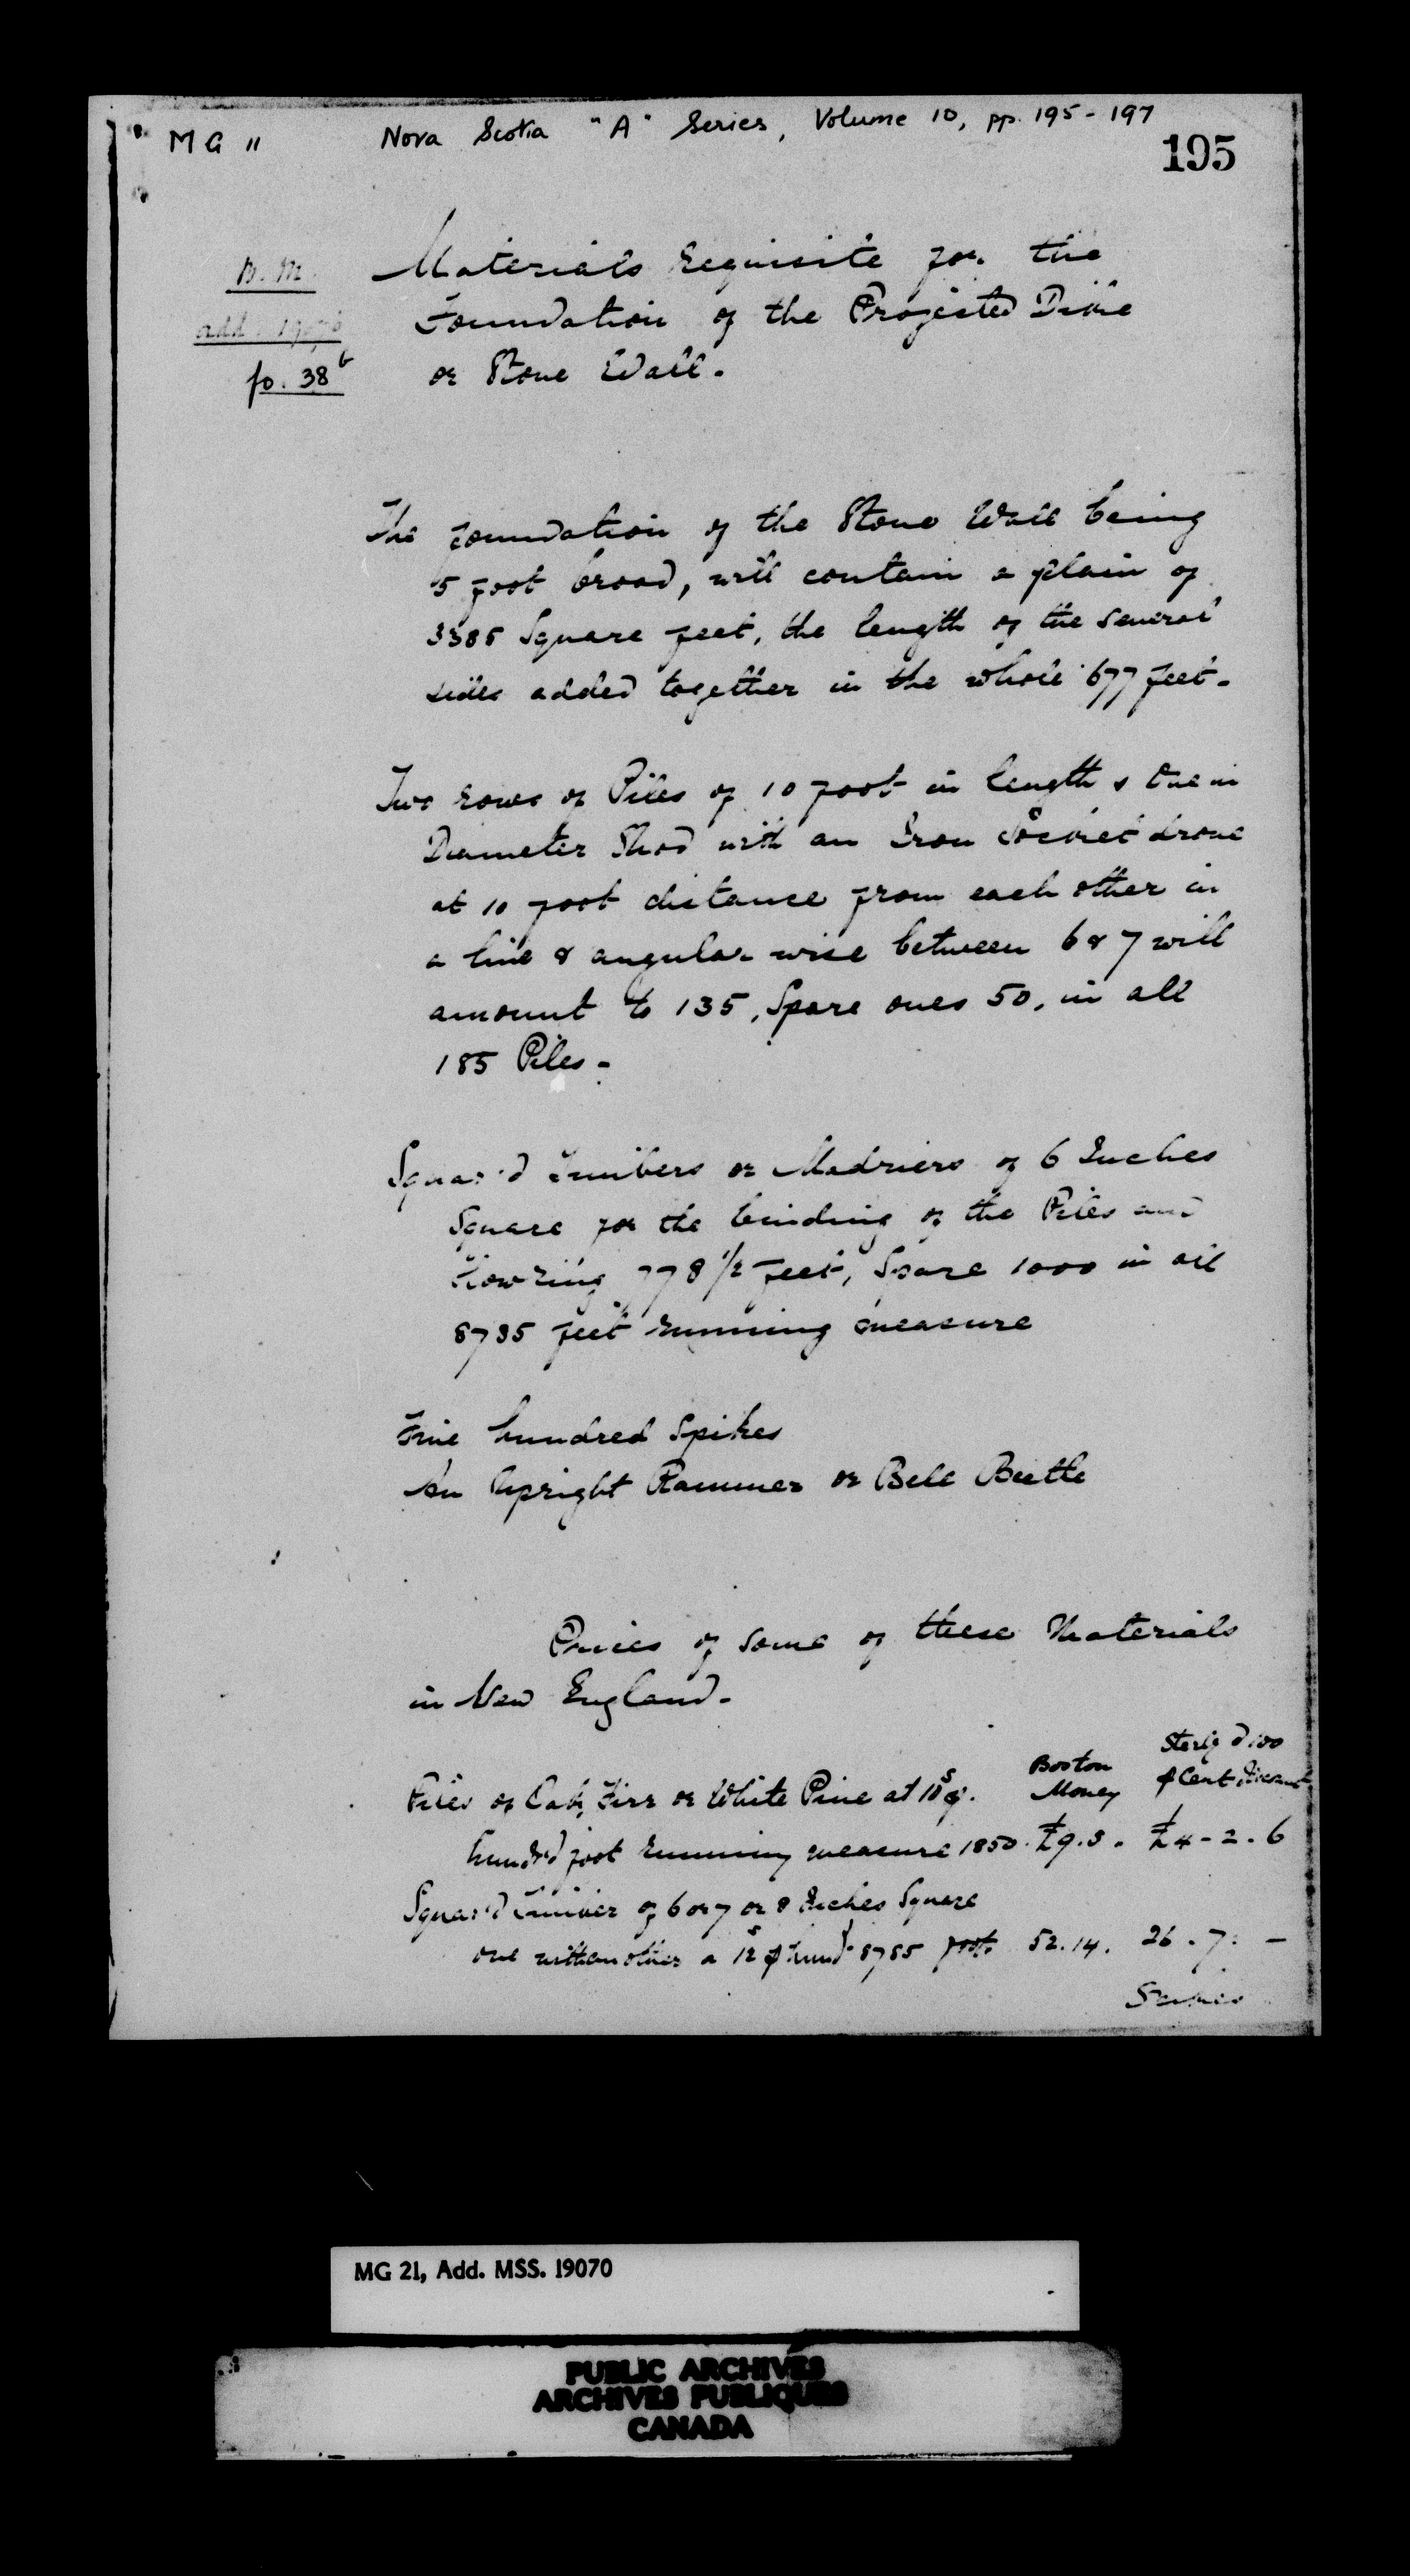 MG 11
Nova Scotia "A" Series, Volume 10, pp. 195-197
195
B. M.
add.
fo. 38b
Materials requisite for the
Foundation of the Projected Dike
or Stone Wall.
The foundation of the Stone Wall being
5 foot broad, will contain a plain of
3385 Square feet, the length of the several
sides added together in the whole 677 feet.
Two rows of Piles of 10 foot in length & one in
Diameter Shod with an Iron Socket drove
at 10 foot distance from each other in
a line & angular wise between 6 & 7 will
amount to 135, Spare ones 50, in all
185 Piles.
Squar'd Timbers or Madriers of 6 Inches
Square for the binding of the Piles and
Flowring 778 1/2 feet, Spare 1000 in all
8785 feet running measure
Five hundred Spikes
An Upright Rammer or Bell Beetle
Prices of some of these Materials
in New England.
Boston
Money
Sterlg d 100
₱ Cent
Piles of Oak, Firr or White Pine at 10s ₱.
hundrd foot running measure 1850. £9.5. £4-2.6
Squar'd Timber of 6 or 7 or 8 Inches Square
one with another a 12s ₱ hund 8785 foot. 52.14. 26.7. -
Spikes
MG 21, Add. MSS. 19070
PUBLIC ARCHIVES
ARCHIVES PUBLIQUES
CANADA